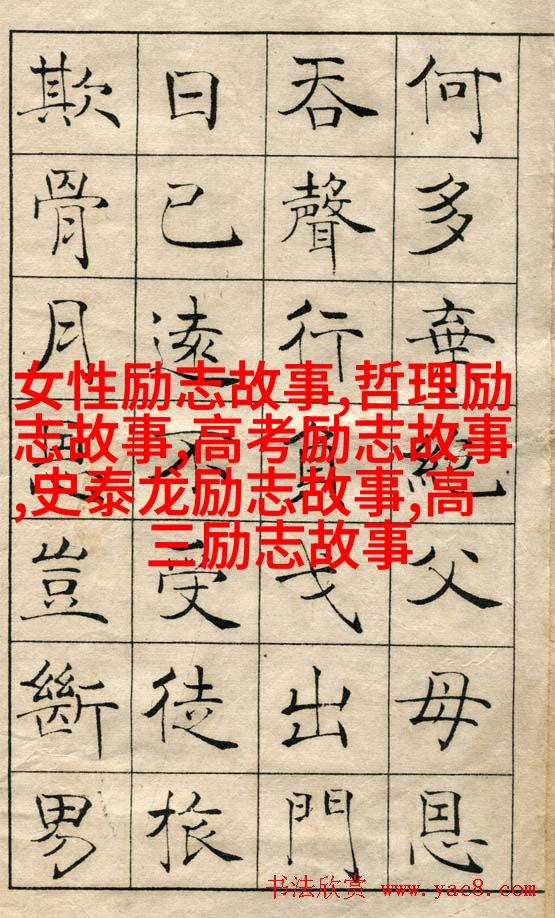 何多棄絕父母恩
吞聲行負戈出門
日已遠不受徒旅
欺骨月恩豈斷男
女性励志故事,哲理励
志故事,高考励志故事
,史泰龙励志故事,高
三励志故事
书法欣赏 www.yac8.com